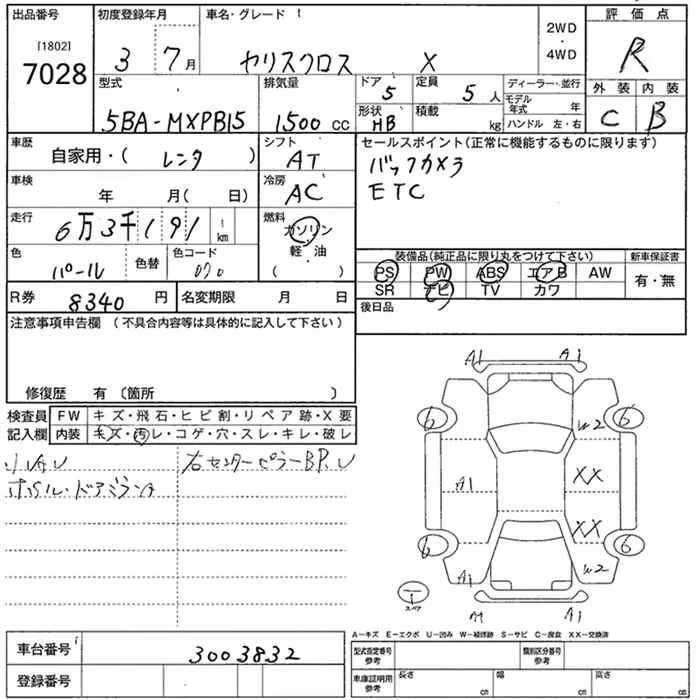 出品番号 初度登録年月 車名・グレード 評価点
[1802]
7028
3 7月 ヤリスクロス X 2WD・4WD R
型式 排気量 ドア 定員 ディーラー・並行 外装 内装
5BA-MXPB15 1500 cc 5 5人 モデル年式 年
形状 HB 積載 kg ハンドル 左・右 C B
車歴 シフト セールスポイント(正常に機能するものに限ります)
自家用・( レンタ ) AT バックカメラ
車検 冷房 ETC
年 月( 日) AC
走行 燃料
6万3千191 km ガソリン 軽・油 ( )
色 色替 色コード 装備品(純正品に限り丸をつけて下さい) 新車保証書
パール 070 PS PW ABS エアB AW 有・無
SR ナビ TV カワ
R券 8340 円 名変期限 月 日 後日品
注意事項申告欄 (不具合内容等は具体的に記入して下さい)
修復歴 有 〔箇所 〕
検査員記入欄 FW キズ・飛石・ヒビ割・リペア跡・X要
内装 キズ・汚レ・コゲ・穴・スレ・キレ・破レ
小 右センターピラーBP.U
ドアミラー
A1 A1
6 6
W2
A1 XX
XX
6 6
A1 W2
1
スペア
A1 A1
A-キズ E-エクボ U-凹み W-補修跡 S-サビ C-腐食 XX-交換済
車台番号 3003832 型式指定番号 参考 類別区分番号 参考
登録番号 車庫証明用 参考 長さ cm 幅 cm 高さ cm